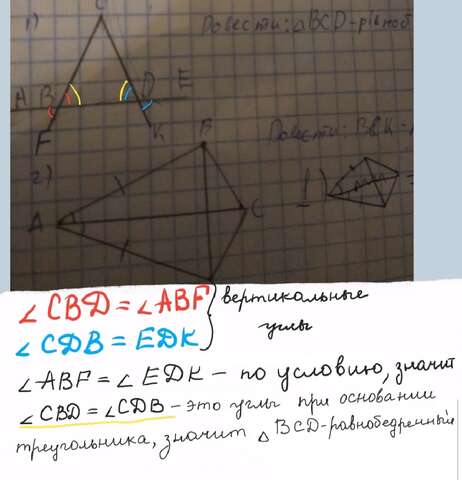 1)
C
Довести: △BCD-рівноб
A B D E
F K
2)
B
Довести: B
1)
A
C
∠CBD = ∠ABF } вертикальные
∠CDB = EDK углы
∠ABF = ∠EDK - по условию, значит
∠CBD = ∠CDB - это углы при основании
треугольника, значит △BCD-равнобедренный